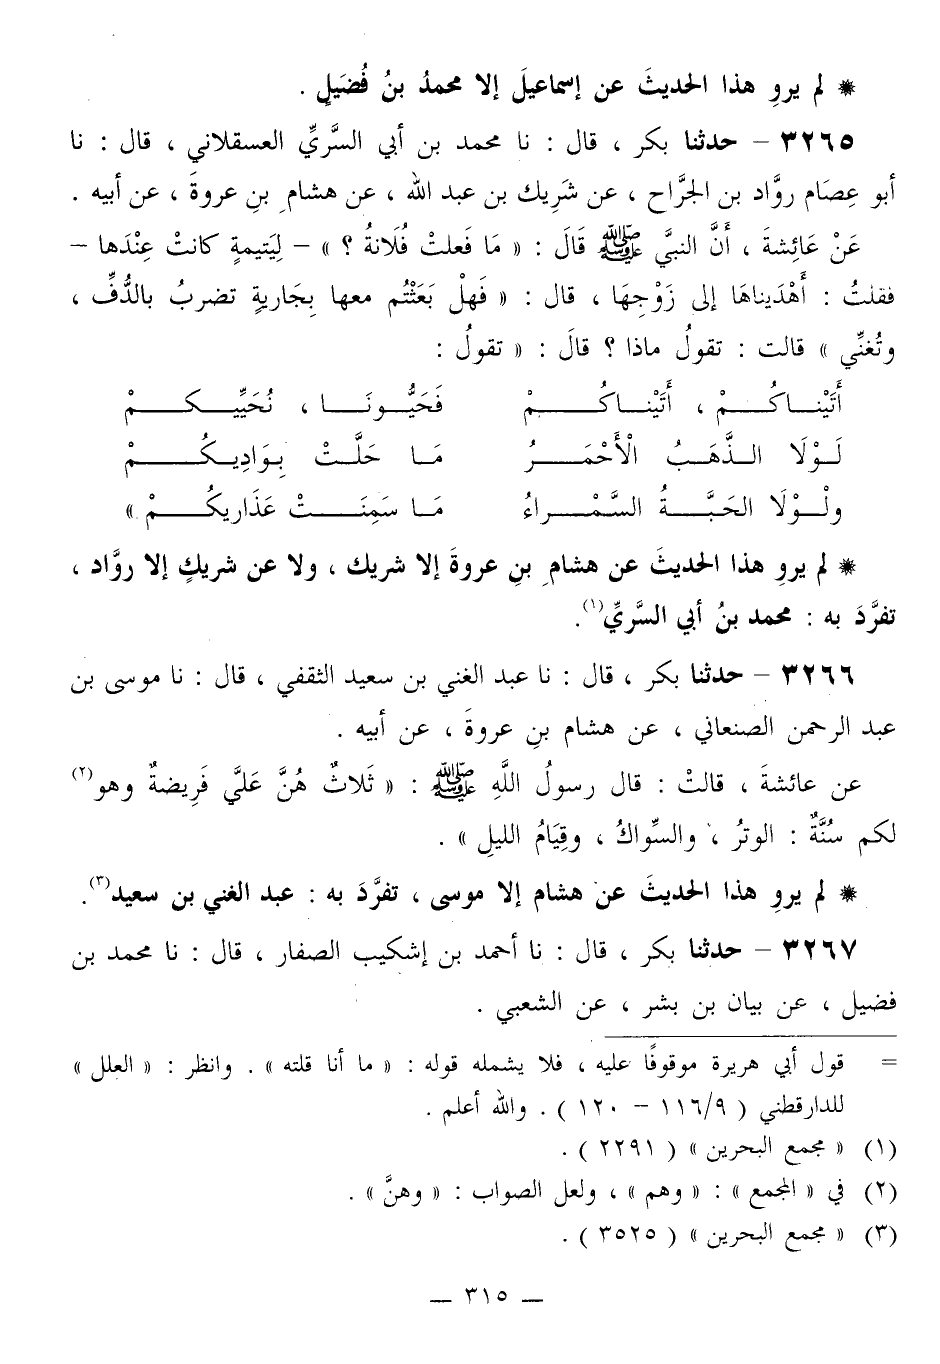 * لم يروِ هذا الحديثَ عن إسماعيلَ إلا محمدُ بنُ فُضَيلٍ .
٣٢٦٥ – حدثنا بكر ، قال : نا محمد بن أبي السَّريِّ العسقلاني ، قال : نا
أبو عِصَام روَّاد بن الجرَّاح ، عن شَرِيك بن عبد الله ، عن هشامِ بنِ عروةَ ، عن أبيه .
عَنْ عَائِشةَ ، أَنَّ النبيَّ ﷺ قَالَ : « مَا فَعلتْ فُلَانةُ ؟ » – لِيَتيمةٍ كانتْ عِنْدَها –
فقلتُ : أَهْدَيناهَا إلى زَوْجِهَا ، قال : « فَهلْ بَعَثْتُم معها بِجَاريةٍ تضربُ بالدُّفِّ ،
وتُغنِّي » قالت : تقولُ ماذا ؟ قالَ : « تقولُ :
أَتَيْناكُمْ ، أَتَيْناكُمْ فَحَيُّونَا ، نُحَيِّيكمْ
لَوْلَا الذَّهَبُ الْأَحْمَرُ مَا حَلَّتْ بِوَادِيكُمْ
ولْوْلَا الحَبَّةُ السَّمْراءُ مَا سَمِنَتْ عَذَارِيكُمْ »
* لم يروِ هذا الحديثَ عن هشامِ بنِ عروةَ إلا شريك ، ولا عن شريكٍ إلا روَّاد ،
تفرَّدَ به : محمد بنُ أبي السَّريِّ(١).
٣٢٦٦ – حدثنا بكر ، قال : نا عبد الغني بن سعيد الثقفي ، قال : نا موسى بن
عبد الرحمن الصنعاني ، عن هشام بنِ عروةَ ، عن أبيه .
عن عائشةَ ، قالتْ : قال رسولُ اللَّهِ ﷺ : « ثَلاثٌ هُنَّ عَلَيَّ فَرِيضةٌ وهو(٢)
لكم سُنَّةٌ : الوترُ ، والسِّواكُ ، وقِيَامُ الليلِ » .
* لم يروِ هذا الحديثَ عن هشام إلا موسى ، تفرَّدَ به : عبد الغني بن سعيد(٣).
٣٢٦٧ – حدثنا بكر ، قال : نا أحمد بن إشكيب الصفار ، قال : نا محمد بن
فضيل ، عن بيان بن بشر ، عن الشعبي .
= قول أبي هريرة موقوفًا عليه ، فلا يشمله قوله : « ما أنا قلته » . وانظر : « العلل »
للدارقطني ( ٩/١١٦ – ١٢٠ ) . والله أعلم .
(١) « مجمع البحرين » ( ٢٢٩١ ) .
(٢) في « المجمع » : « وهم » ، ولعل الصواب : « وهنَّ » .
(٣) « مجمع البحرين » ( ٣٥٢٥ ) .
— ٣١٥ —